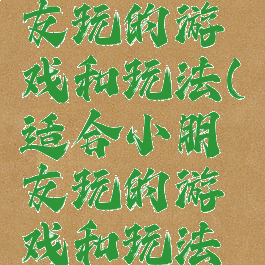 友玩的游
戏和玩法(
适合小朋
友玩的游
戏和玩法